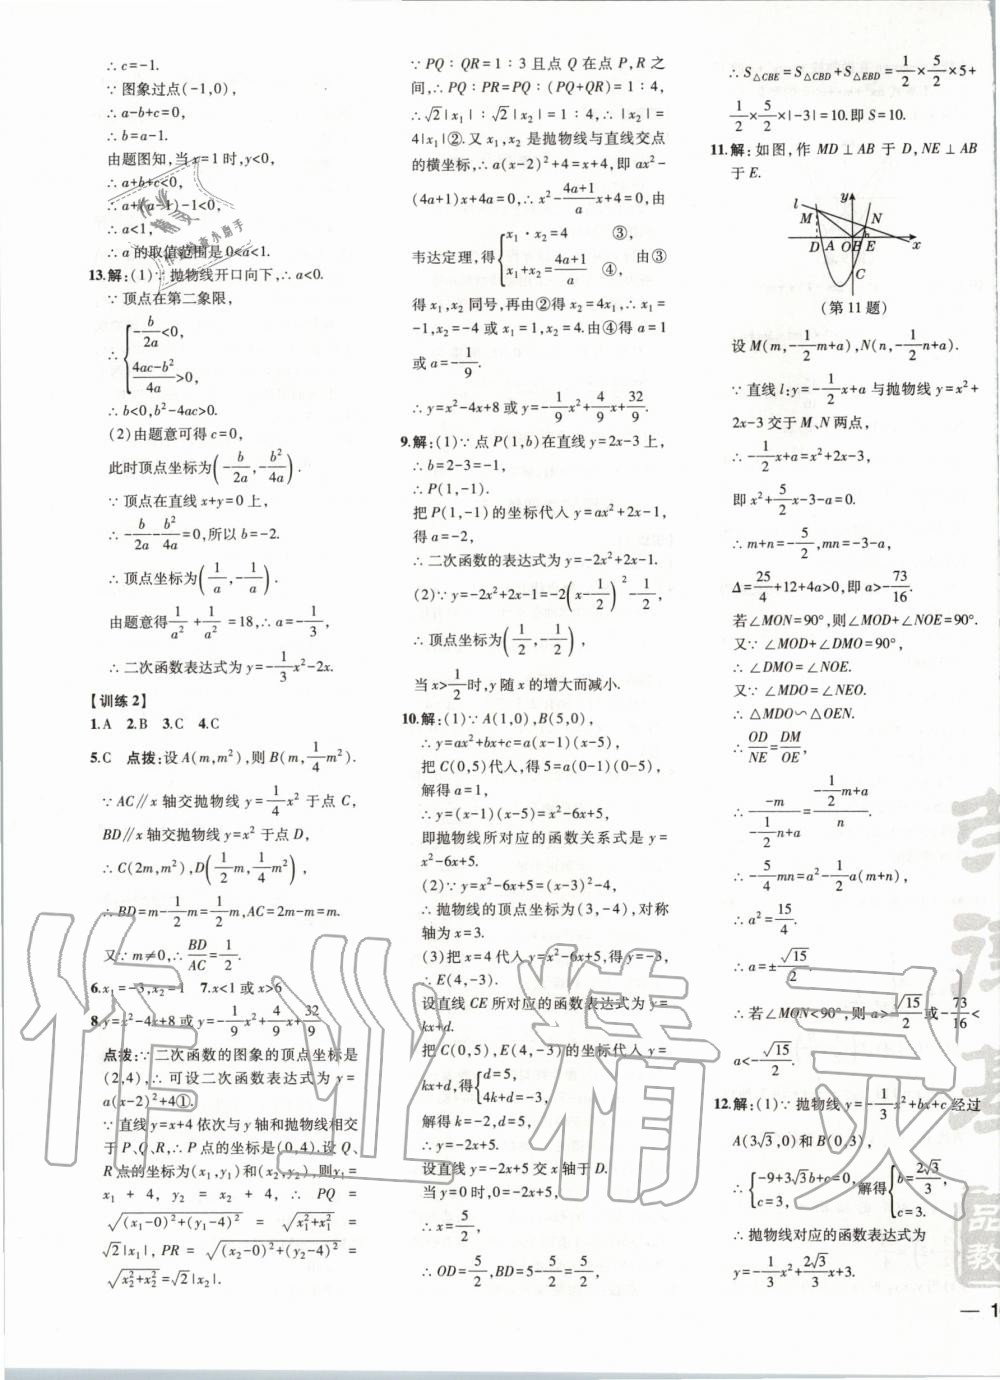 ∴ c=-1.
∵ 图象过点(-1,0),
∴ a-b+c=0,
∴ b=a-1.
由题图知,当 x=1 时,y<0,
∴ a+b+c<0,
∴ a+(a-1)-1<0,
∴ a<1,
∴ a 的取值范围是 0<a<1.
13.解:(1)∵ 抛物线开口向下,∴ a<0.
∵ 顶点在第二象限,
∴ { -b/2a<0, (4ac-b²)/4a>0,
∴ b<0,b²-4ac>0.
(2)由题意可得 c=0,
此时顶点坐标为(-b/2a,-b²/4a).
∵ 顶点在直线 x+y=0 上,
∴ -b/2a-b²/4a=0,所以 b=-2.
∴ 顶点坐标为(1/a,-1/a),
由题意得 1/a²+1/a²=18,∴ a=-1/3,
∴ 二次函数表达式为 y=-1/3x²-2x.
【训练 2】
1.A 2.B 3.C 4.C
5.C 点拨:设 A(m,m²),则 B(m,1/4m²).
∵ AC∥x 轴交抛物线 y=1/4x² 于点 C,
BD∥x 轴交抛物线 y=x² 于点 D,
∴ C(2m,m²),D(1/2m,1/4m²),
∴ BD=m-1/2m=1/2m,AC=2m-m=m.
又∵ m≠0,∴ BD/AC=1/2.
6.x₁=-3,x₂=1 7.x<1 或 x>6
8.y=x²-4x+8 或 y=-1/9x²+4/9x+32/9
点拨:∵ 二次函数的图象的顶点坐标是
(2,4),∴ 可设二次函数表达式为 y=
a(x-2)²+4①.
∵ 直线 y=x+4 依次与 y 轴和抛物线相交
于 P、Q、R,∴ P 点的坐标是(0,4).设 Q、
R 点的坐标为(x₁,y₁)和(x₂,y₂),则 y₁=
x₁+4,y₂=x₂+4,∴ PQ=
√((x₁-0)²+(y₁-4)²)=√(x₁²+x₁²)=
√2|x₁|,PR=√((x₂-0)²+(y₂-4)²)=
√(x₂²+x₂²)=√2|x₂|.
∵ PQ∶QR=1∶3 且点 Q 在点 P,R 之
间,∴ PQ∶PR=PQ∶(PQ+QR)=1∶4,
∴ √2|x₁|∶√2|x₂|=1∶4,∴ |x₂|=
4|x₁|②.又 x₁,x₂ 是抛物线与直线交点
的横坐标,∴ a(x-2)²+4=x+4,即 ax²-
(4a+1)x+4a=0,∴ x²-(4a+1)/a x+4=0,由
韦达定理,得{ x₁·x₂=4 ③, x₁+x₂=(4a+1)/a ④, 由③
得 x₁,x₂ 同号,再由②得 x₂=4x₁,∴ x₁=
-1,x₂=-4 或 x₁=1,x₂=4.由④得 a=1
或 a=-1/9.
∴ y=x²-4x+8 或 y=-1/9x²+4/9x+32/9.
9.解:(1)∵ 点 P(1,b)在直线 y=2x-3 上,
∴ b=2-3=-1,
∴ P(1,-1).
把 P(1,-1)的坐标代入 y=ax²+2x-1,
得 a=-2,
∴ 二次函数的表达式为 y=-2x²+2x-1.
(2)∵ y=-2x²+2x-1=-2(x-1/2)²-1/2,
∴ 顶点坐标为(1/2,-1/2),
当 x>1/2 时,y 随 x 的增大而减小.
10.解:(1)∵ A(1,0),B(5,0),
∴ y=ax²+bx+c=a(x-1)(x-5),
把 C(0,5)代入,得 5=a(0-1)(0-5),
解得 a=1,
∴ y=(x-1)(x-5)=x²-6x+5,
即抛物线所对应的函数关系式是 y=
x²-6x+5.
(2)∵ y=x²-6x+5=(x-3)²-4,
∴ 抛物线的顶点坐标为(3,-4),对称
轴为 x=3.
(3)把 x=4 代入 y=x²-6x+5,得 y=-3,
∴ E(4,-3).
设直线 CE 所对应的函数表达式为 y=
kx+d.
把 C(0,5),E(4,-3)的坐标代入 y=
kx+d,得{ d=5, 4k+d=-3,
解得 k=-2,d=5,
∴ y=-2x+5.
设直线 y=-2x+5 交 x 轴于 D.
当 y=0 时,0=-2x+5,
∴ x=5/2,
∴ OD=5/2,BD=5-5/2=5/2,
∴ S△CBE=S△CBD+S△EBD=1/2×5/2×5+
1/2×5/2×|-3|=10.即 S=10.
11.解:如图,作 MD⊥AB 于 D,NE⊥AB
于 E.
l M y N D A O B E x C
(第 11 题)
设 M(m,-1/2m+a),N(n,-1/2n+a).
∵ 直线 l:y=-1/2x+a 与抛物线 y=x²+
2x-3 交于 M、N 两点,
∴ -1/2x+a=x²+2x-3,
即 x²+5/2x-3-a=0.
∴ m+n=-5/2,mn=-3-a,
Δ=25/4+12+4a>0,即 a>-73/16.
若∠MON=90°,则∠MOD+∠NOE=90°.
又∵ ∠MOD+∠DMO=90°,
∴ ∠DMO=∠NOE.
又∵ ∠MDO=∠NEO.
∴ △MDO∽△OEN.
∴ OD/NE=DM/OE,
∴ -m/(-1/2n+a)=(-1/2m+a)/n.
∴ -5/4mn=a²-1/2a(m+n),
∴ a²=15/4,
∴ a=±√15/2.
∴ 若∠MON<90°,则 a>√15/2 或-73/16<
a<-√15/2.
12.解:(1)∵ 抛物线 y=-1/3x²+bx+c 经过
A(3√3,0)和 B(0,3),
∴ { -9+3√3b+c=0, c=3, 解得{ b=2√3/3, c=3.
∴ 抛物线对应的函数表达式为
y=-1/3x²+2√3/3x+3.
作业精灵
品
教